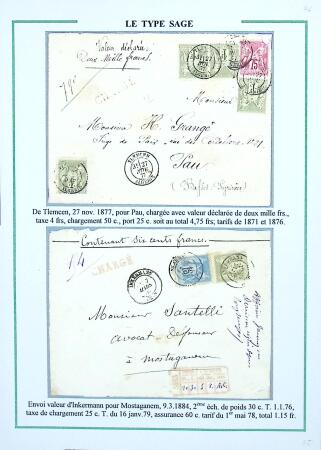 LE TYPE SAGE
Valeur déclarée
Deux Mille francs
CHARGÉ
Monsieur
Monsieur H. Grangé
Juge de Paix, rue des 21
Pau
(Basses Pyrénées)
TLEMCEN
De Tlemcen, 27 nov. 1877, pour Pau, chargée avec valeur déclarée de deux mille frs.,
taxe 4 frs, chargement 50 c., port 25 c. soit au total 4,75 frs; tarifs de 1871 et 1876.
Contenant Six cents francs.
14
CHARGÉ
INKERMANN
Monsieur Santelli
avocat Défenseur
à Mostaganem
Envoi valeur d'Inkermann pour Mostaganem, 9.3.1884, 2ème éch. de poids 30 c. T. 1.1.76,
taxe de chargement 25 c. T. du 16 janv.79, assurance 60 c. tarif du 1er mai 78, total 1.15 fr.